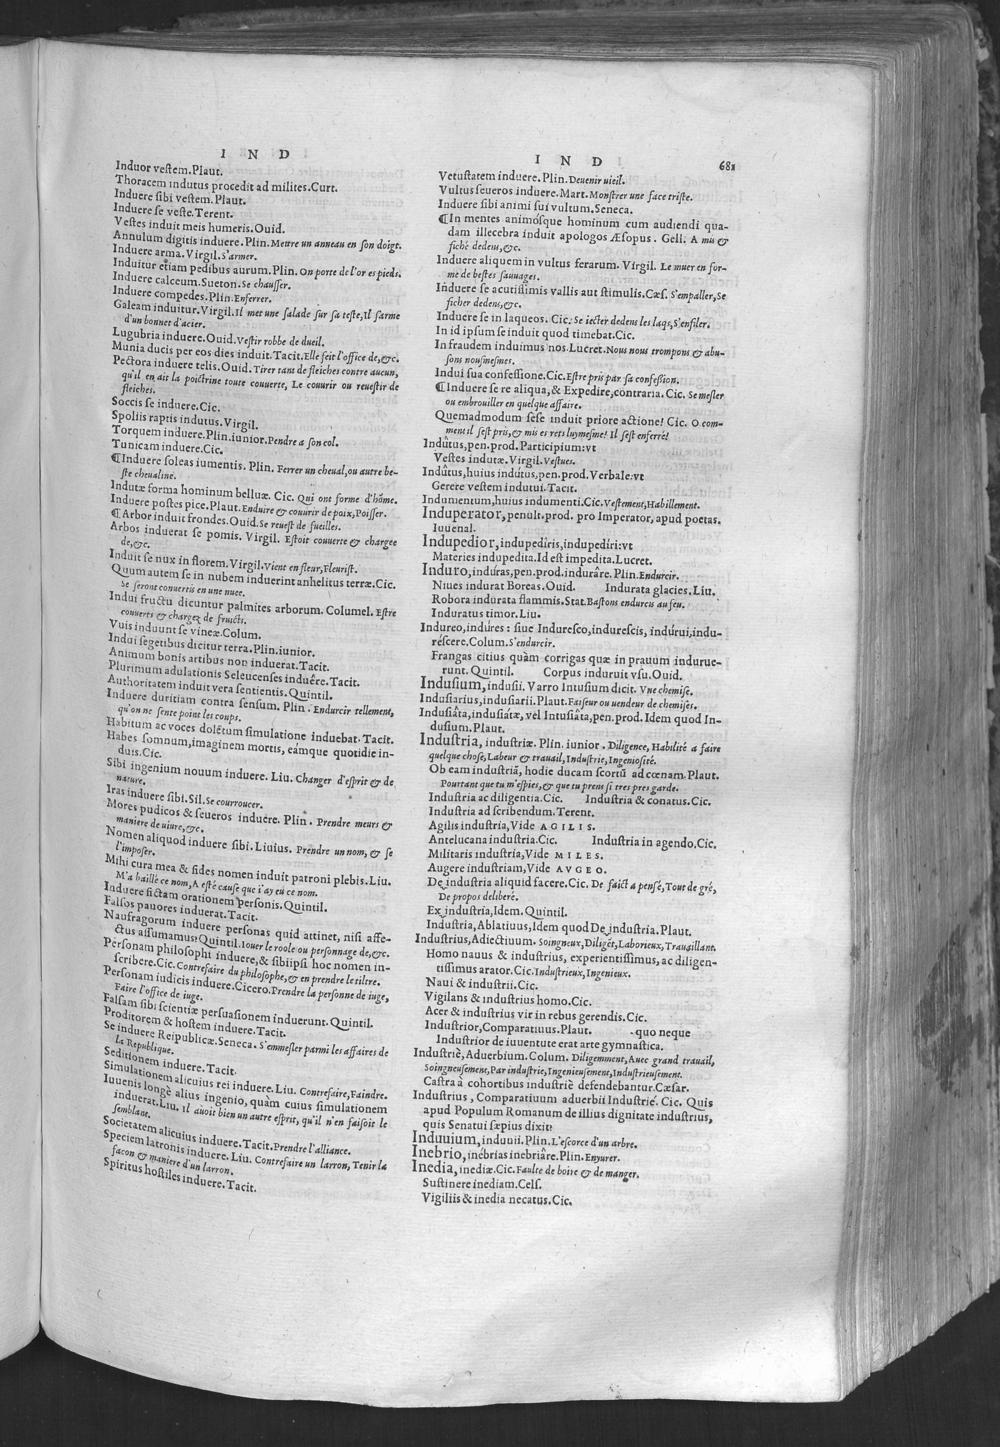 I N D
Induor vestem.Plaut.
Thoracem indutus procedit ad milites.Curt.
Induere sibi vestem.Plaut.
Induere se veste.Terent.
Vestes induit meis humeris.Ouid.
Annulum digitis induere.Plin.Mettre un anneau en son doigt.
Induere arma.Virgil.S'armer.
Induitur etiam pedibus aurum.Plin.On porte de l'or es pieds.
Induere calceum.Sueton.Se chausser.
Induere compedes.Plin.Enferrer.
Galeam induitur.Virgil.Il met une salade sur sa teste,Il s'arme
d'un bonnet d'acier.
Lugubria induere.Ouid.Vestir robbe de dueil.
Munia ducis per eos dies induit.Tacit.Elle feit l'office de,&c.
Pectora induere telis.Ouid.Tirer tant de fleiches contre aucun,
qu'il en ait la poictrine toute couuerte, Le couurir ou reuestir de
fleiches.
Soccis se induere.Cic.
Spoliis raptis indutus.Virgil.
Torquem induere.Plin.iunior.Pendre a son col.
Tunicam induere.Cic.
¶Induere soleas iumentis. Plin. Ferrer un cheual,ou autre be-
ste cheualine.
Indutæ forma hominum belluæ. Cic. Qui ont forme d'hōme.
Induere postes pice.Plaut.Enduire & couurir de poix,Poisser.
¶Arbor induit frondes.Ouid.Se reuest de fueilles.
Arbos induerat se pomis. Virgil. Estoit couuerte & chargee
de,&c.
Induit se nux in florem.Virgil.Vient en fleur,Fleurist.
Quum autem se in nubem induerint anhelitus terræ.Cic.
Se seront conuertis en une nuee.
Indui fructu dicuntur palmites arborum. Columel. Estre
couuerts & chargez de fruicts.
Vuis induunt se vineæ.Colum.
Indui segetibus dicitur terra.Plin.iunior.
Animum bonis artibus non induerat.Tacit.
Plurimum adulationis Seleucenses induêre.Tacit.
Authoritatem induit vera sentientis.Quintil.
Induere duritiam contra sensum. Plin. Endurcir tellement,
qu'on ne sente point les coups.
Habitum ac voces dolētum simulatione induebat.Tacit.
Habes somnum,imaginem mortis, eámque quotidie in-
duis.Cic.
Sibi ingenium nouum induere. Liu. Changer d'esprit & de
nature.
Iras induere sibi.Sil.Se courroucer.
Mores pudicos & seueros induere. Plin. Prendre meurs &
maniere de uiure,&c.
Nomen aliquod induere sibi.Liuius. Prendre un nom, & se
l'imposer.
Mihi cura mea & fides nomen induit patroni plebis.Liu.
M'a baillé ce nom,A esté cause que i'ay eu ce nom.
Induere fictam orationem personis.Quintil.
Falsos pauores induerat.Tacit.
Naufragorum induere personas quid attinet, nisi affe-
ctus assumamus?Quintil.Iouer le roole ou personnage de,&c.
Personam philosophi induere,& sibiipsi hoc nomen in-
scribere.Cic.Contrefaire du philosophe,& en prendre le tiltre.
Personam iudicis induere.Cicero.Prendre la personne de iuge,
Faire l'office de iuge.
Falsam sibi scientiæ persuasionem induerunt.Quintil.
Proditorem & hostem induere.Tacit.
Se induere Reipublicæ.Seneca. S'emmesler parmi les affaires de
la Republique.
Seditionem induere.Tacit.
Simulationem alicuius rei induere.Liu. Contrefaire,Faindre.
Iuuenis longè alius ingenio, quàm cuius simulationem
induerat.Liu. Il auoit bien un autre esprit, qu'il n'en faisoit le
semblant.
Societatem alicuius induere.Tacit.Prendre l'alliance.
Speciem latronis induere. Liu. Contrefaire un larron, Tenir la
facon & maniere d'un larron.
Spiritus hostiles induere.Tacit.
I N D 681
Vetustatem induere. Plin. Deuenir uieil.
Vultus seueros induere. Mart. Monstrer une face triste.
Induere sibi animi sui vultum.Seneca.
¶In mentes animósque hominum cum audiendi qua-
dam illecebra induit apologos Æsopus. Gell. A mis &
fiché dedens,&c.
Induere aliquem in vultus ferarum. Virgil. Le muer en for-
me de bestes sauuages.
Induere se acutissimis vallis aut stimulis.Cæs. S'empaller,Se
ficher dedens,&c.
Induere se in laqueos. Cic. Se iecter dedens les laqs,S'enfiler.
In id ipsum se induit quod timebat.Cic.
In fraudem induimus nos.Lucret.Nous nous trompons & abu-
sons nousmesmes.
Indui sua confessione.Cic.Estre pris par sa confession.
¶Induere se re aliqua,& Expedire,contraria. Cic. Se mesler
ou embrouiller en quelque affaire.
Quemadmodum sese induit priore actione! Cic. O com-
ment il s'est pris,& mis es rets luymesme! Il s'est enferré!
Indûtus,pen.prod.Participium:vt
Vestes indutæ.Virgil.Vestues.
Indûtus,huius indútus,pen.prod.Verbale:vt
Gerere vestem indutui.Tacit.
Indumentum,huius indumenti.Cic.Vestement,Habillement.
Induperator, penult.prod. pro Imperator, apud poetas.
Iuuenal.
Indupedior, indupediris,indupedíri:vt
Materies indupedita.Id est impedita.Lucret.
Induro,indúras,pen.prod.indurâre.Plin.Endurcir.
Niues indurat Boreas. Ouid. Indurata glacies.Liu.
Robora indurata flammis.Stat.Bastons endurcis au feu.
Induratus timor.Liu.
Indureo,indúres: siue Induresco,indurescis, indúrui,indu-
réscere.Colum.S'endurcir.
Frangas citius quàm corrigas quæ in prauum indurue-
runt. Quintil. Corpus induruit vsu.Ouid.
Indusium, indusii. Varro Intusium dicit. Vne chemise.
Indusiarius,indusiarii.Plaut.Faiseur ou uendeur de chemises.
Indusiâta,indusiátæ, vel Intusiâta,pen.prod. Idem quod In-
dusium.Plaut.
Industria, industriæ. Plin. iunior. Diligence, Habilité a faire
quelque chose,Labeur & trauail,Industrie,Ingeniosité.
Ob eam industriā, hodie ducam scortū ad cœnam.Plaut.
Pourtant que tu m'espies,& que tu prens si tres pres garde.
Industria ac diligentia.Cic. Industria & conatus.Cic.
Industria ad scribendum.Terent.
Agilis industria,Vide AGILIS.
Antelucana industria.Cic. Industria in agendo.Cic.
Militaris industria,Vide MILES.
Augere industriam,Vide AVGEO.
De industria aliquid facere.Cic. De faict a pensé, Tout de gré,
De propos deliberé.
Ex industria,Idem. Quintil.
Industria, Ablatiuus, Idem quod De industria.Plaut.
Industrius,Adiectiuum. Soingneux,Diligēt,Laborieux,Trauaillant.
Homo nauus & industrius, experientissimus, ac diligen-
tissimus arator. Cic.Industrieux,Ingenieux.
Naui & industrii.Cic.
Vigilans & industrius homo.Cic.
Acer & industrius vir in rebus gerendis.Cic.
Industrior,Comparatiuus.Plaut. -quo neque
Industrior de iuuentute erat arte gymnastica.
Industriè, Aduerbium. Colum. Diligemment, Auec grand trauail,
Soingneusement, Par industrie, Ingenieusement, Industrieusement.
Castra à cohortibus industriè defendebantur.Cæsar.
Industrius, Comparatiuum aduerbii Industriè. Cic. Quis
apud Populum Romanum de illius dignitate industrius,
quis Senatui sæpius dixit?
Induuium,induuii.Plin.L'escorce d'un arbre.
Inebrio,inébrias inebriâre.Plin.Enyurer.
Inedia, inediæ.Cic.Faulte de boire & de manger.
Sustinere inediam.Cels.
Vigiliis & inedia necatus.Cic.